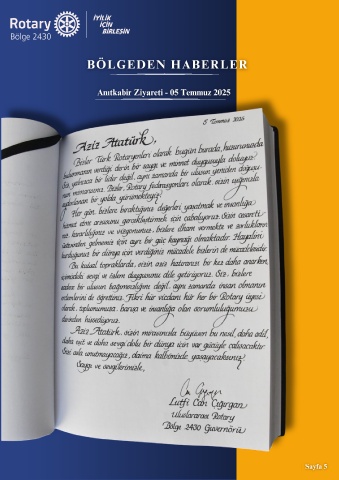 Rotary
Bölge 2430
İYİLİK
İÇİN
BİRLEŞİN
BÖLGEDEN HABERLER
Anıtkabir Ziyareti - 05 Temmuz 2025
5 Temmuz
Aziz Atatürk,
Bizler Türk Rotaryenleri olarak bugün burada, huzurunuzda
bulunmanın verdiği derin bir saygı ve minnet duygusuyla doluyuz.
Siz, yalnızca bir lider değil, aynı zamanda bir ulusun yeniden doğuşu
mimarısınız. Bizler, Rotary olarak sizin ışığınızla
aydınlanan bir yolda yürümekteyiz!
Her gün, bizlere bıraktığınız değerleri yaşatmak ve insanlığa
hizmet etme arzusunu gerçekleştirmek için çabalıyoruz. Sizin
kararlılığınız ve vizyonunuz, bizlere ilham vermekte ve zorlukların
üstesinden gelmemiz için ayrı bir güç kaynağı olmaktadır. Hayalini
kurduğunuz bir dünya için verdiğiniz mücadele bizlerin de mücadelesidir.
Bu kutsal topraklarda, sizin aziz hatıranızı bir kez daha anarken,
içimizdeki sevgi ve özlem duygusunu dile getiriyoruz. Siz, bizlere
sadece bir ulusun bağımsızlığını değil, aynı zamanda insan olmanın
erdemlerini de öğrettiniz. Fikri hür vicdanı hür her bir Rotary üyesi
olarak, toplumumuza, barışa ve insanlığa olan sorumluluğumuzu
derinden hissediyoruz.
Aziz Atatürk, sizin mirasınızla büyüyen bu nesil, daha adil,
daha eşit ve daha sevgi dolu bir dünya için var gücüyle çalışacaktır.
Sizi asla unutmayacağız, daima kalbimizde yaşayacaksınız.
Saygı ve sevgilerimizle,
Lütfi Can Çığırgan
Uluslararası Rotary
Bölge 2430 Guvernörü
Sayfa 5